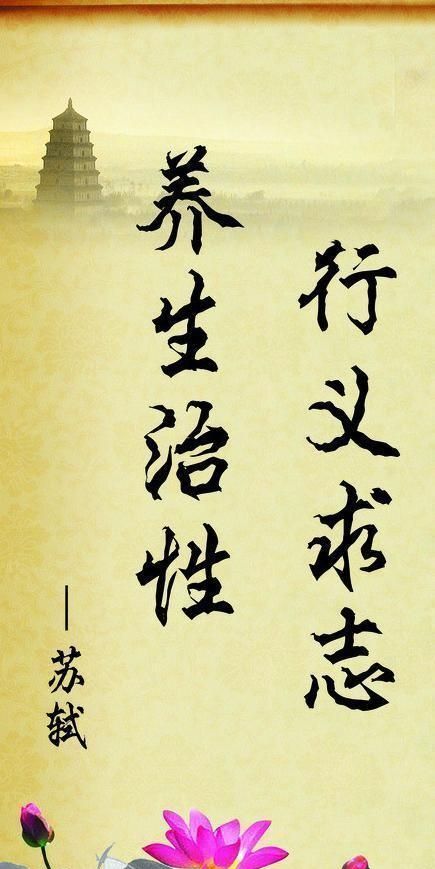 养生治性
行义求志
—苏轼